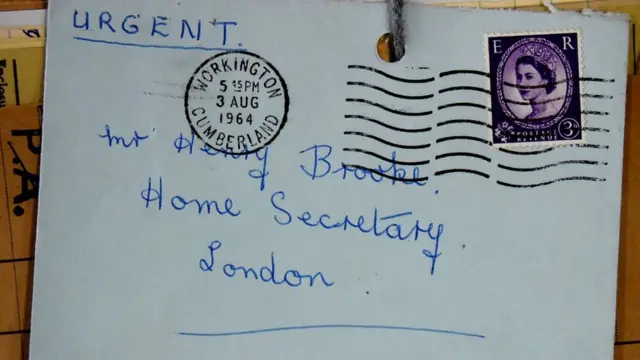 URGENT.
WORKINGTON
5 45 PM
3 AUG
1964
CUMBERLAND
E R
POSTAGE
REVENUE
3D
Mr Henry Brooke.
Home Secretary.
London
P.A.